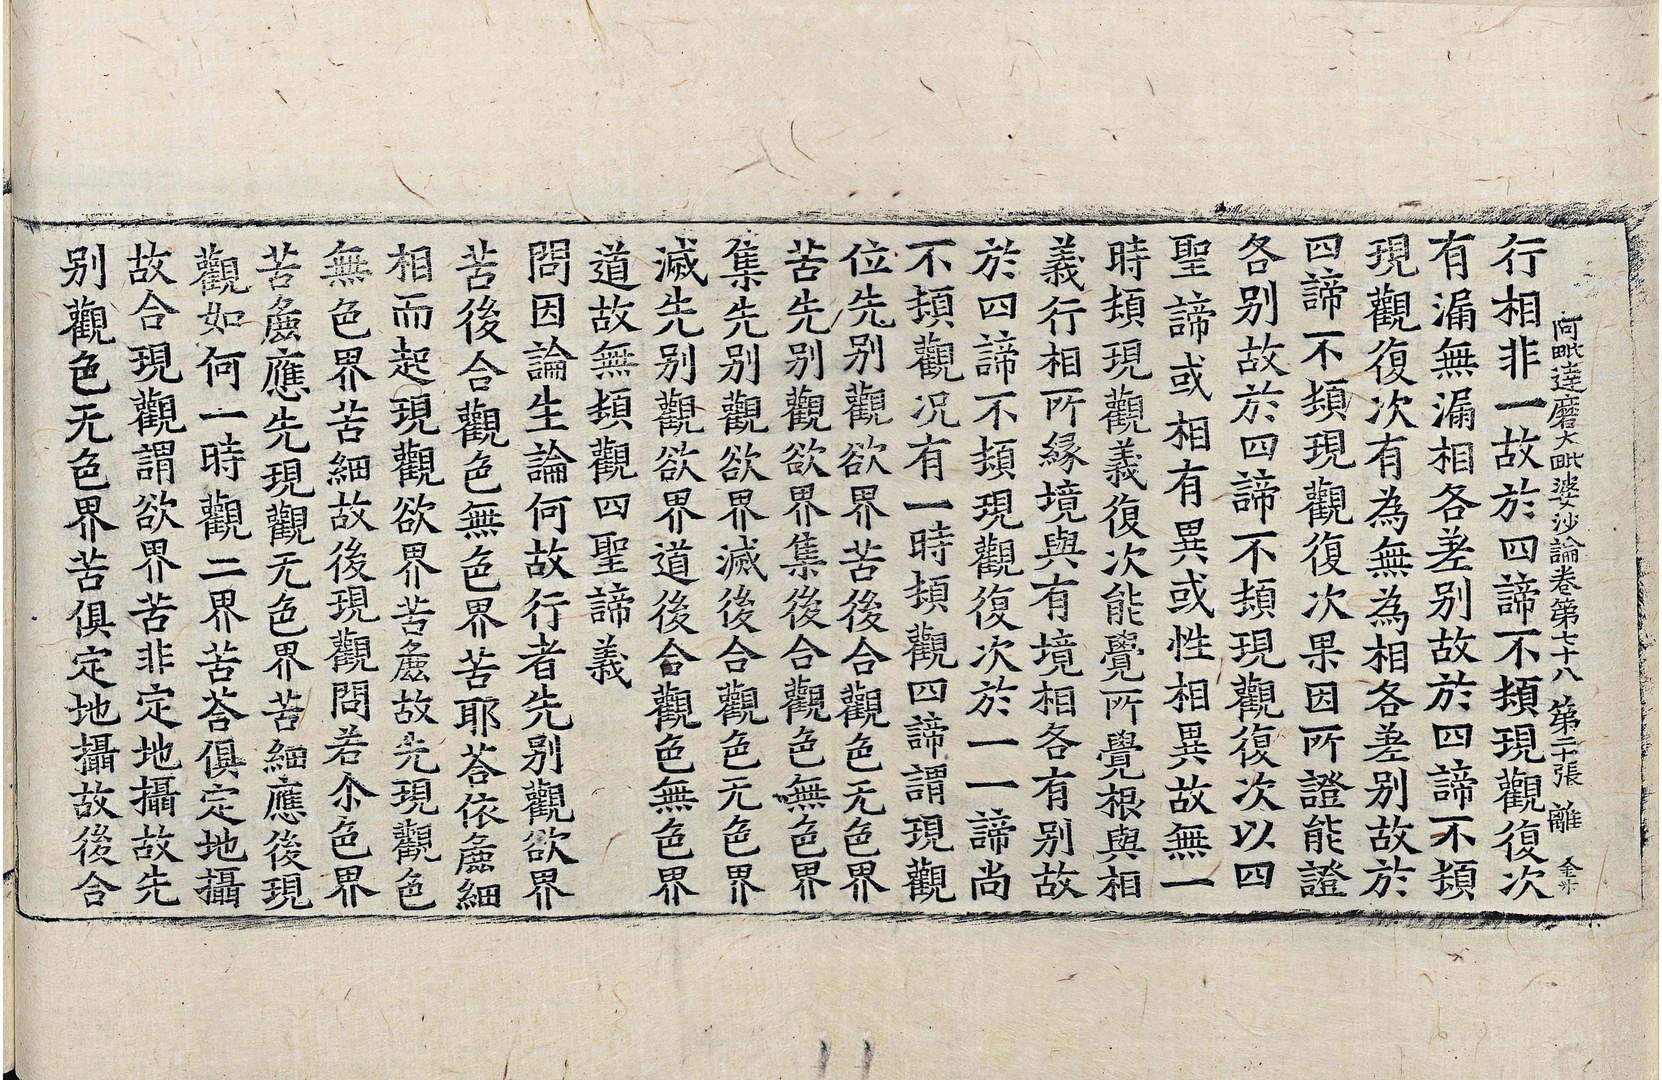 阿毗達磨大毗婆沙論卷第七十八 第二十張 離
行相非一故於四諦不頓現觀復次
有漏無漏相各差别故於四諦不頓
現觀復次有為無為相各差别故於
四諦不頓現觀復次果因所證能證
各别故於四諦不頓現觀復次以四
聖諦或相有異或性相異故無一
時頓現觀義復次能覺所覺根與相
義行相所緣境與有境相各有别故
於四諦不頓現觀復次於一一諦尚
不頓觀况有一時頓觀四諦謂現觀
位先别觀欲界苦後合觀色无色界
苦先别觀欲界集後合觀色無色界
集先别觀欲界滅後合觀色无色界
滅先别觀欲界道後合觀色無色界
道故無頓觀四聖諦義
問因論生論何故行者先别觀欲界
苦後合觀色無色界苦耶荅依麁細
相而起現觀欲界苦麁故先現觀色
無色界苦細故後現觀問若尒色界
苦麁應先現觀无色界苦細應後現
觀如何一時觀二界苦荅俱定地攝
故合現觀謂欲界苦非定地攝故先
别觀色无色界苦俱定地攝故後合